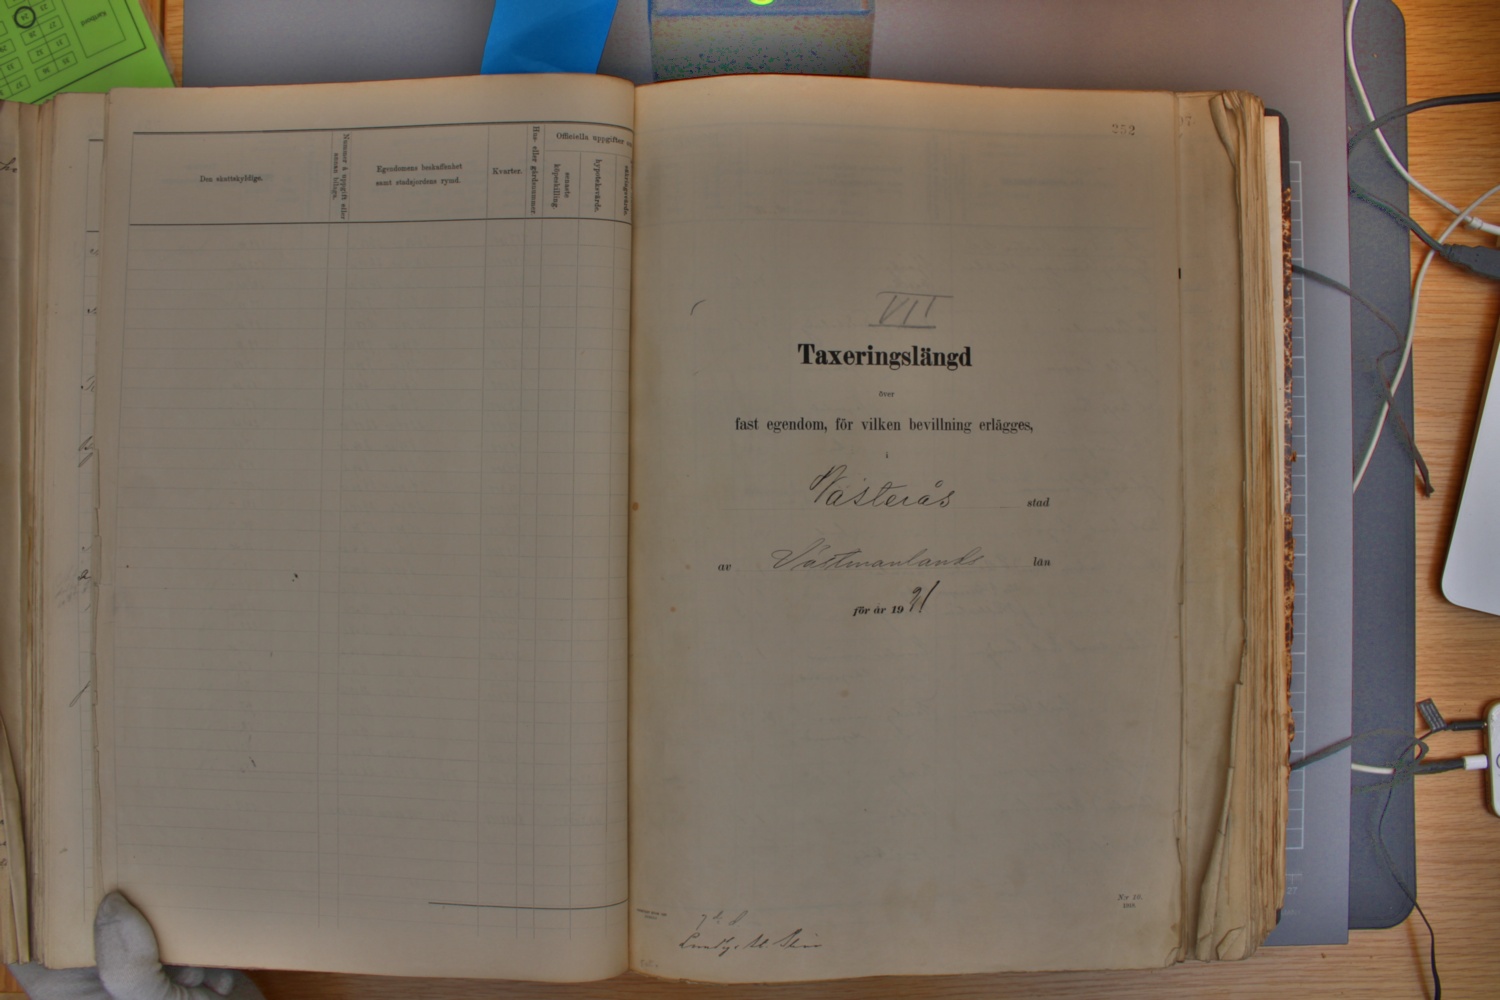 Den skattskyldige.
Nummer å uppgift eller annan bilaga.
Egendomens beskaffenhet
samt stadsjordens rymd.
Kvarter.
Hus- eller gårdsnummer
Officiella uppgifter
senaste köpeskilling.
hypoteksvärde.
252
VII
Taxeringslängd
över
fast egendom, för vilken bevillning erlägges,
i
Västerås stad
av Västmanlands län
för år 1921